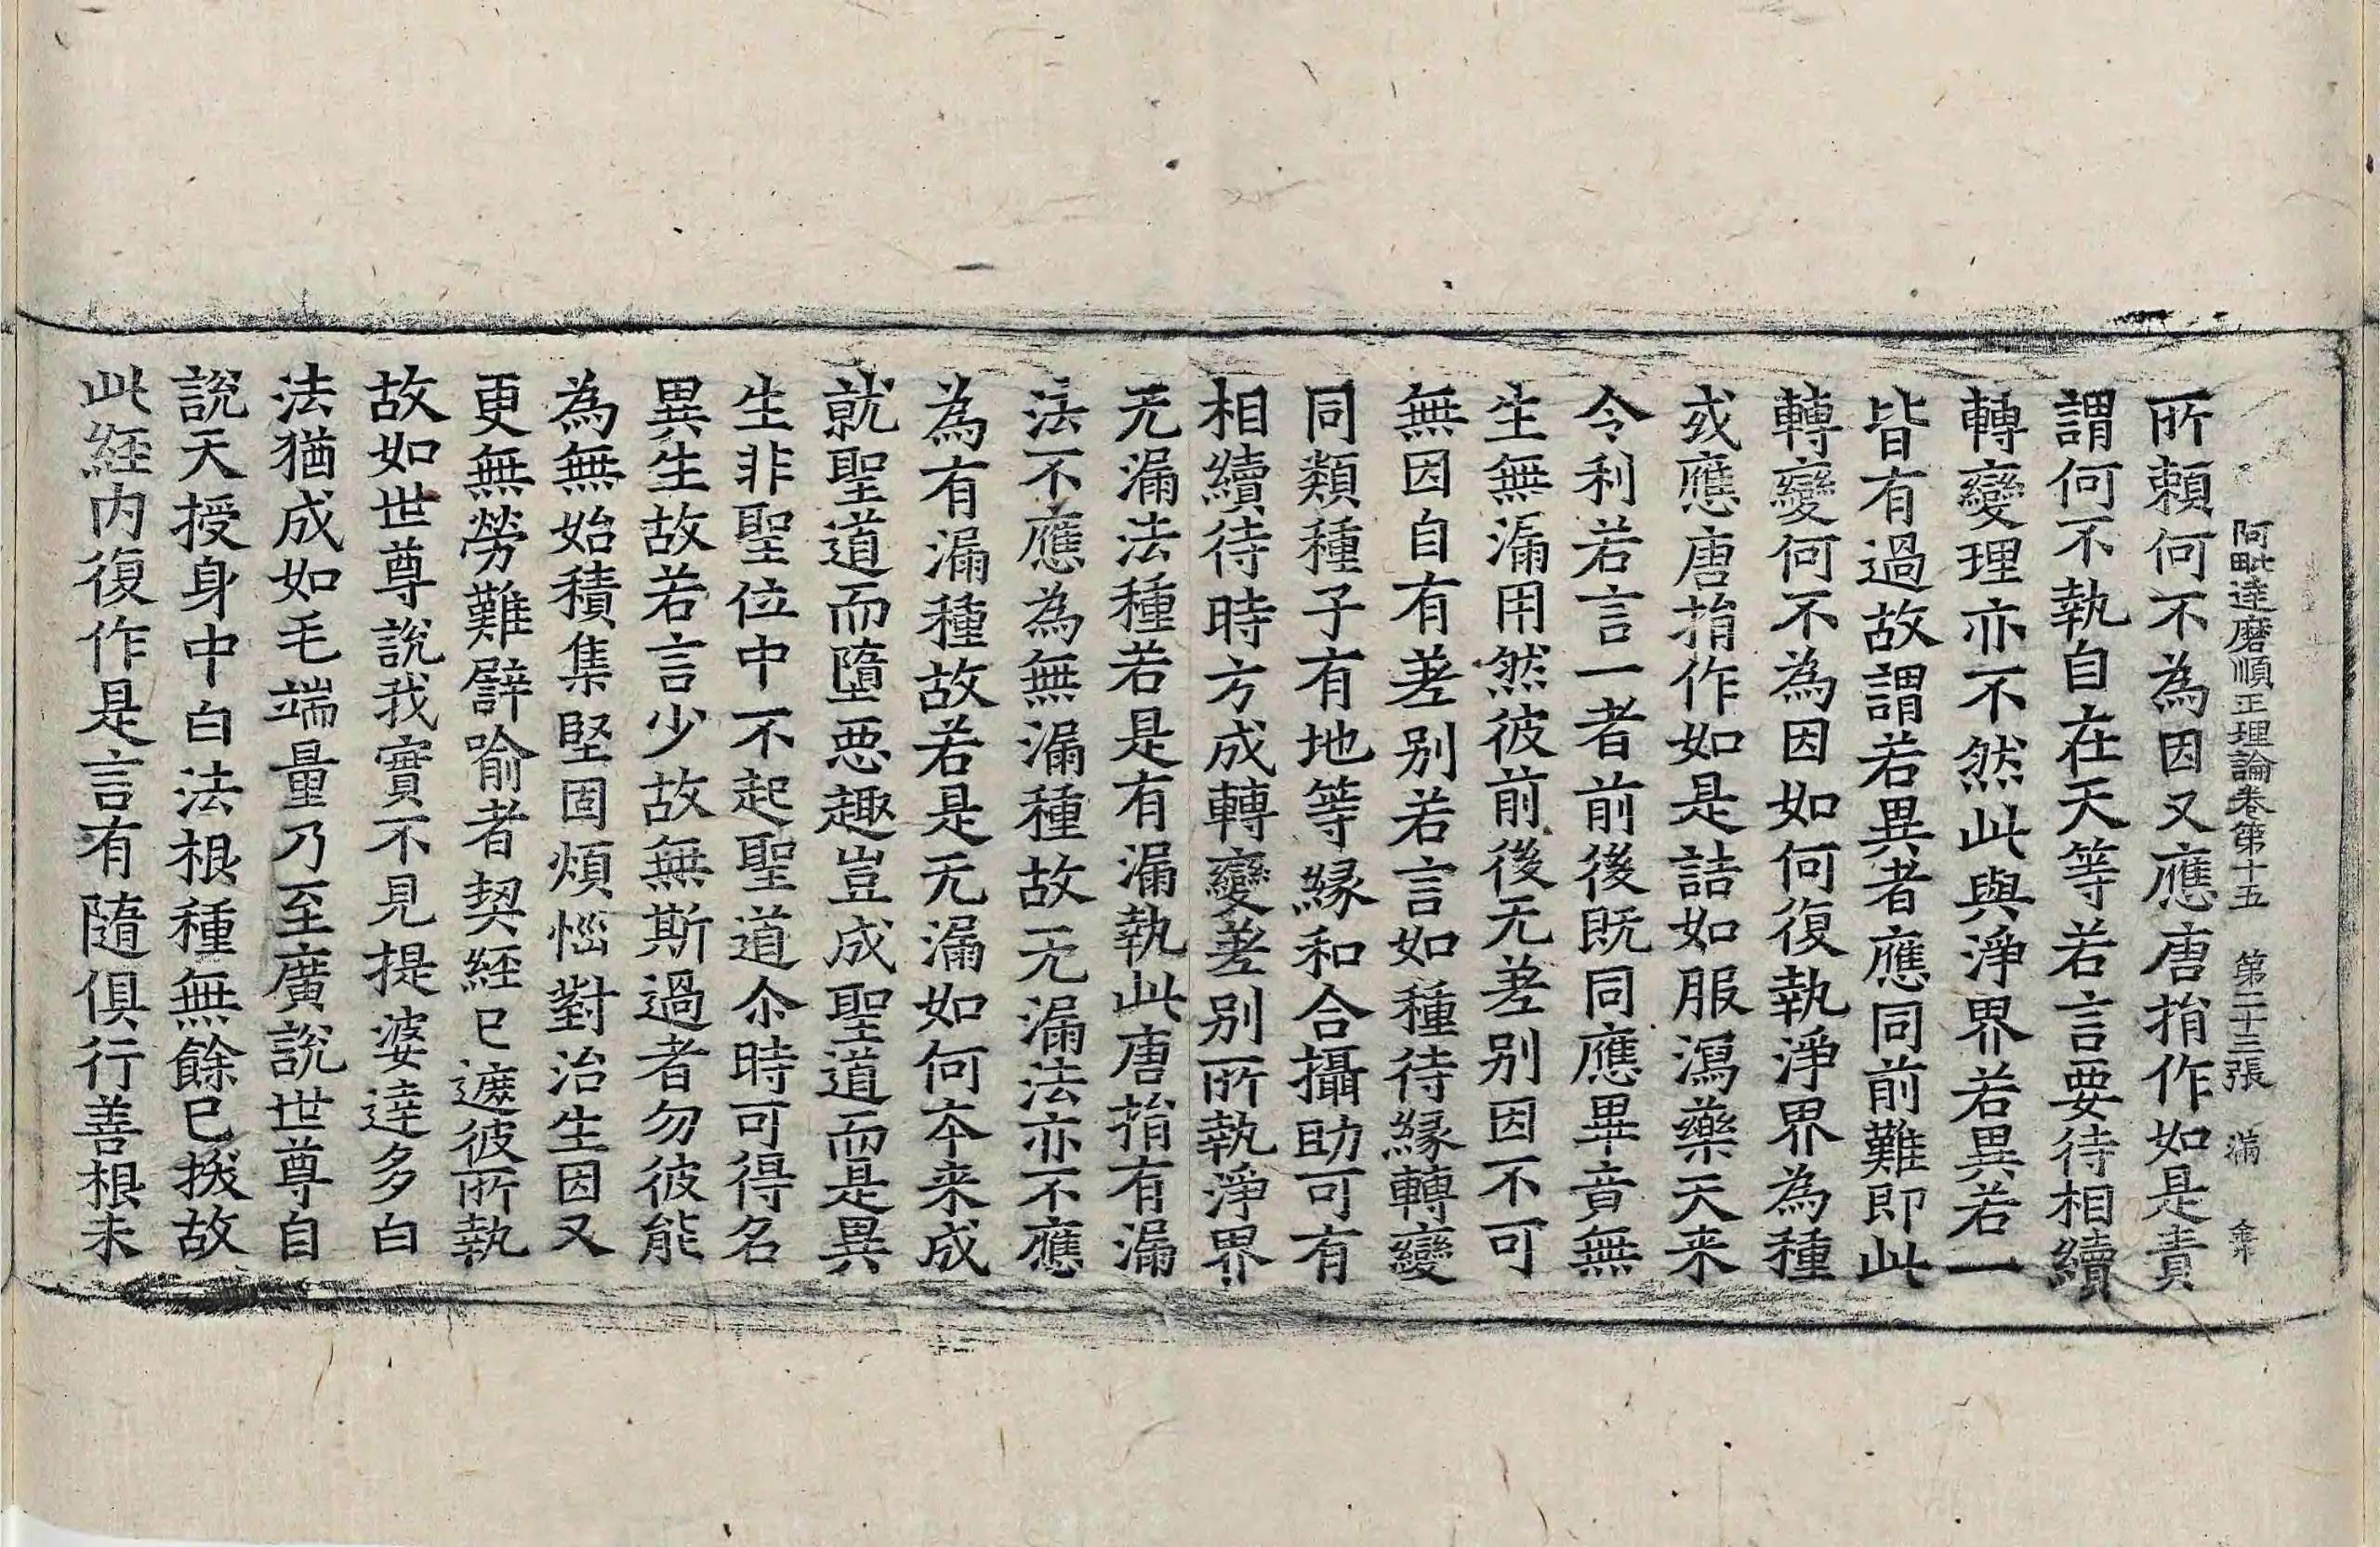 阿毗達磨順正理論卷第十五　第二十三張　滿
所賴何不為因又應唐捐作如是責
謂何不執自在天等若言要待相續
轉變理亦不然此與淨界若異若一
皆有過故謂若異者應同前難即此
轉變何不為因如何復執淨界為種
或應唐捐作如是詰如服瀉藥天来
令利若言一者前後既同應畢竟無
生無漏用然彼前後无差別因不可
無因自有差別若言如種待緣轉變
同類種子有地等緣和合攝助可有
相續待時方成轉變差別所執淨界
无漏法種若是有漏執此唐捐有漏
法不應為無漏種故无漏法亦不應
為有漏種故若是无漏如何夲来成
就聖道而墮惡趣豈成聖道而是異
生非聖位中不起聖道尒時可得名
異生故若言少故無斯過者勿彼能
為無始積集堅固煩惱對治生因又
更無勞難譬喻者契經已遮彼所執
故如世尊說我實不見提婆達多白
法猶成如毛端量乃至廣說世尊自
說天授身中白法根種無餘已拔故
此經內復作是言有隨俱行善根未